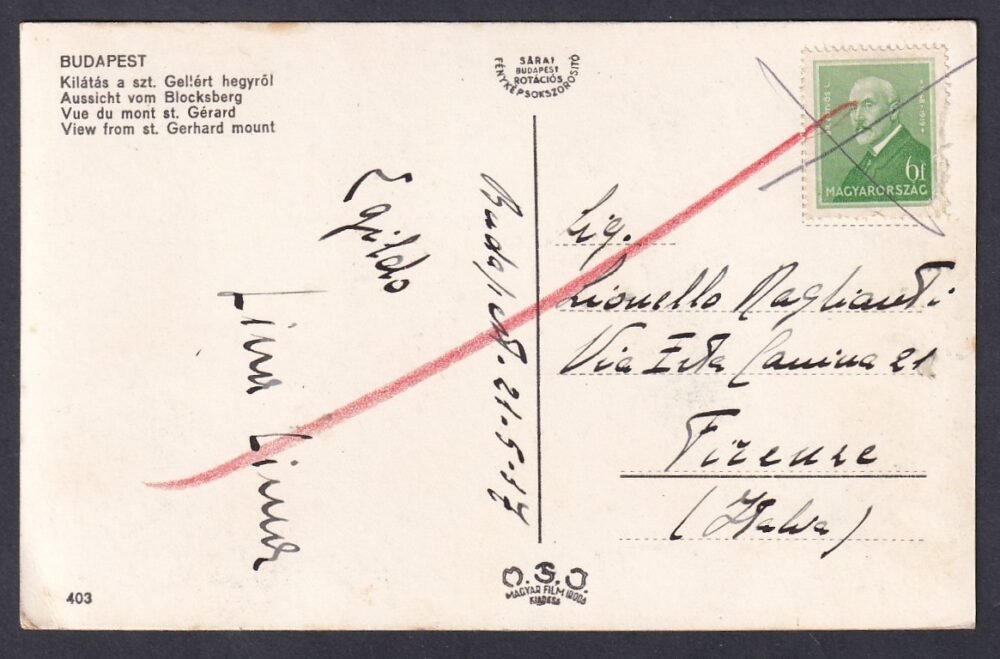 BUDAPEST
Kilátás a szt. Gellért hegyről
Aussicht vom Blocksberg
Vue du mont st. Gérard
View from st. Gerhard mount
SÁRAI
BUDAPEST
ROTÁCIÓS
FÉNYKÉPSOKSZOROSÍTÓ
6f
MAGYARORSZÁG
Egildo
Budapest. 21-5-37
Sig.
Lionello Maglianti
Via Erta Canina 21
Firenze
(Italia)
403
O.S.J.
MAGYAR FILM IRODA
KIADÁSA